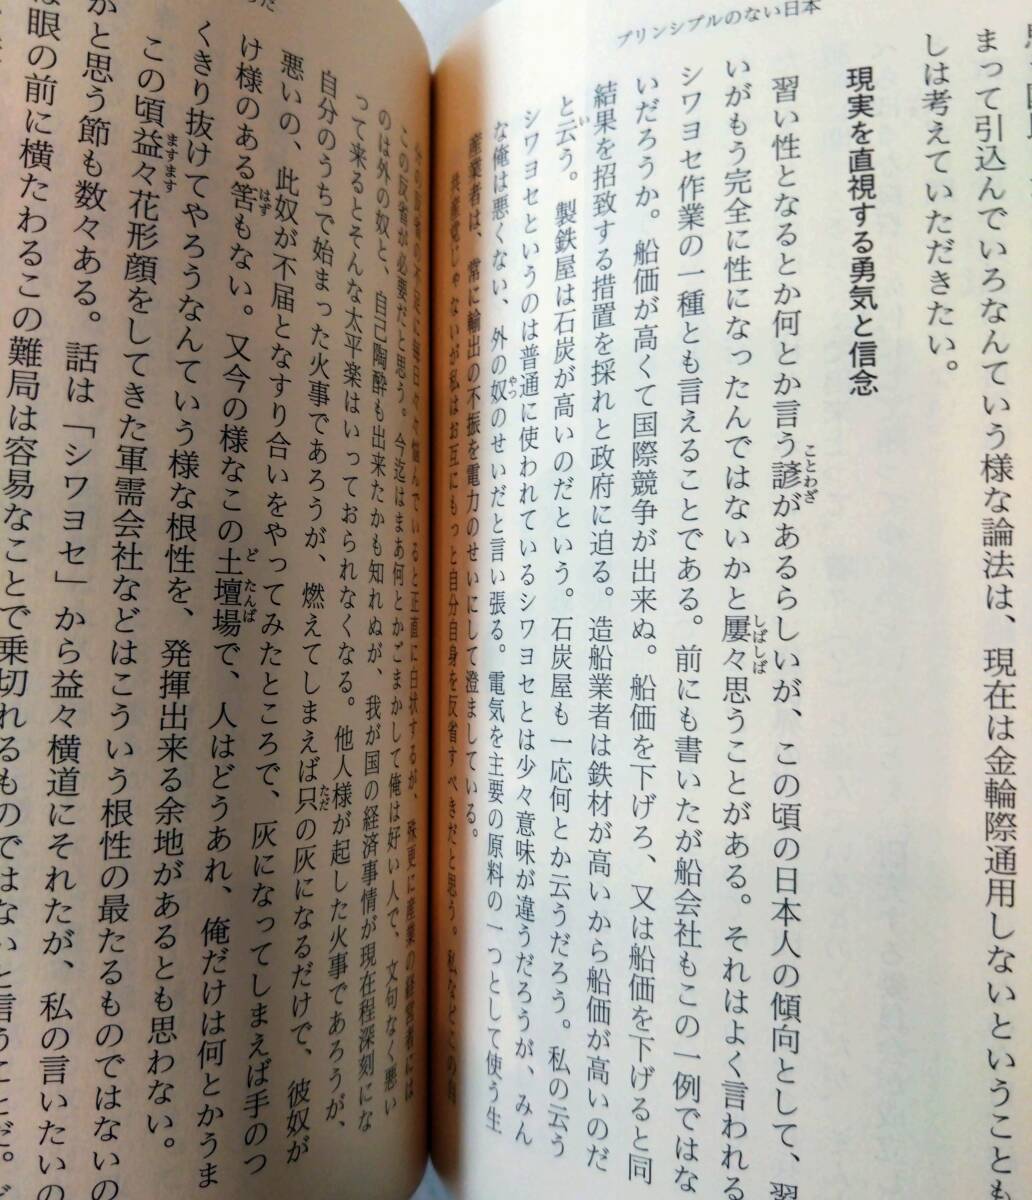 プリンシプルのない日本
まって引込んでいろなんていう様な論法は、現在は金輪際通用しないということも
しは考えていただきたい。
現実を直視する勇気と信念
習い性となるとか何とか言う諺があるらしいが、この頃の日本人の傾向として、習
いがもう完全に性になったんではないかと屢々思うことがある。それはよく言われる
シワヨセ作業の一種とも言えることである。前にも書いたが船会社もこの一例ではな
いだろうか。船価が高くて国際競争が出来ぬ。船価を下げろ、又は船価を下げると同
結果を招致する措置を採れと政府に迫る。造船業者は鉄材が高いから船価が高いのだ
と云う。製鉄屋は石炭が高いのだという。石炭屋も一応何とか云うだろう。私の云う
シワヨセというのは普通に使われているシワヨセとは少々意味が違うだろうが、みん
な俺は悪くない、外の奴のせいだと言い張る。電気を主要の原料の一つとして使う生
産業者は、常に輸出の不振を電力のせいにして澄ましている。
共産党じゃないが私はお互にもっと自分自身を反省すべきだと思う。私などこの自
分の反省の不足に毎日々々悩んでいると正直に白状するが、殊更に産業の経営者には
この反省が必要だと思う。今迄はまあ何とかごまかして俺は好い人で、文句なく悪い
のは外の奴と、自己陶酔も出来たかも知れぬが、我が国の経済事情が現在程深刻にな
って来るとそんな太平楽はいっておられなくなる。他人様が起した火事であろうが、
自分のうちで始まった火事であろうが、燃えてしまえば只の灰になるだけで、彼奴が
悪いの、此奴が不届となすり合いをやってみたところで、灰になってしまえば手のつ
け様のある筈もない。又今の様なこの土壇場で、人はどうあれ、俺だけは何とかうま
くきり抜けてやろうなんていう様な根性を、発揮出来る余地があるとも思わない。
この頃益々花形顔をしてきた軍需会社などはこういう根性の最たるものではないの
かと思う節も数々ある。話は「シワヨセ」から益々横道にそれたが、私の言いたいの
は眼の前に横たわるこの難局は容易なことで乗切れるものではないと言うことだ。